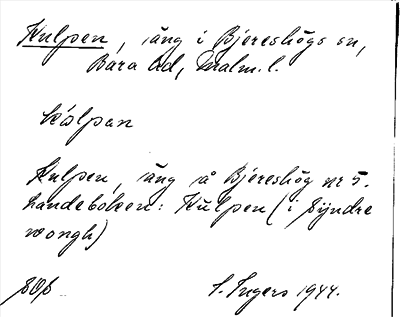 Kulpen, äng i Bjereshögs sn,
Bara hd, Malm. l.
Kúlpan
Kulpen, äng på Bjereshög nr 5.
Landeboken: Kulpen (i Syndre
wongh)
S. Ingers 1944.